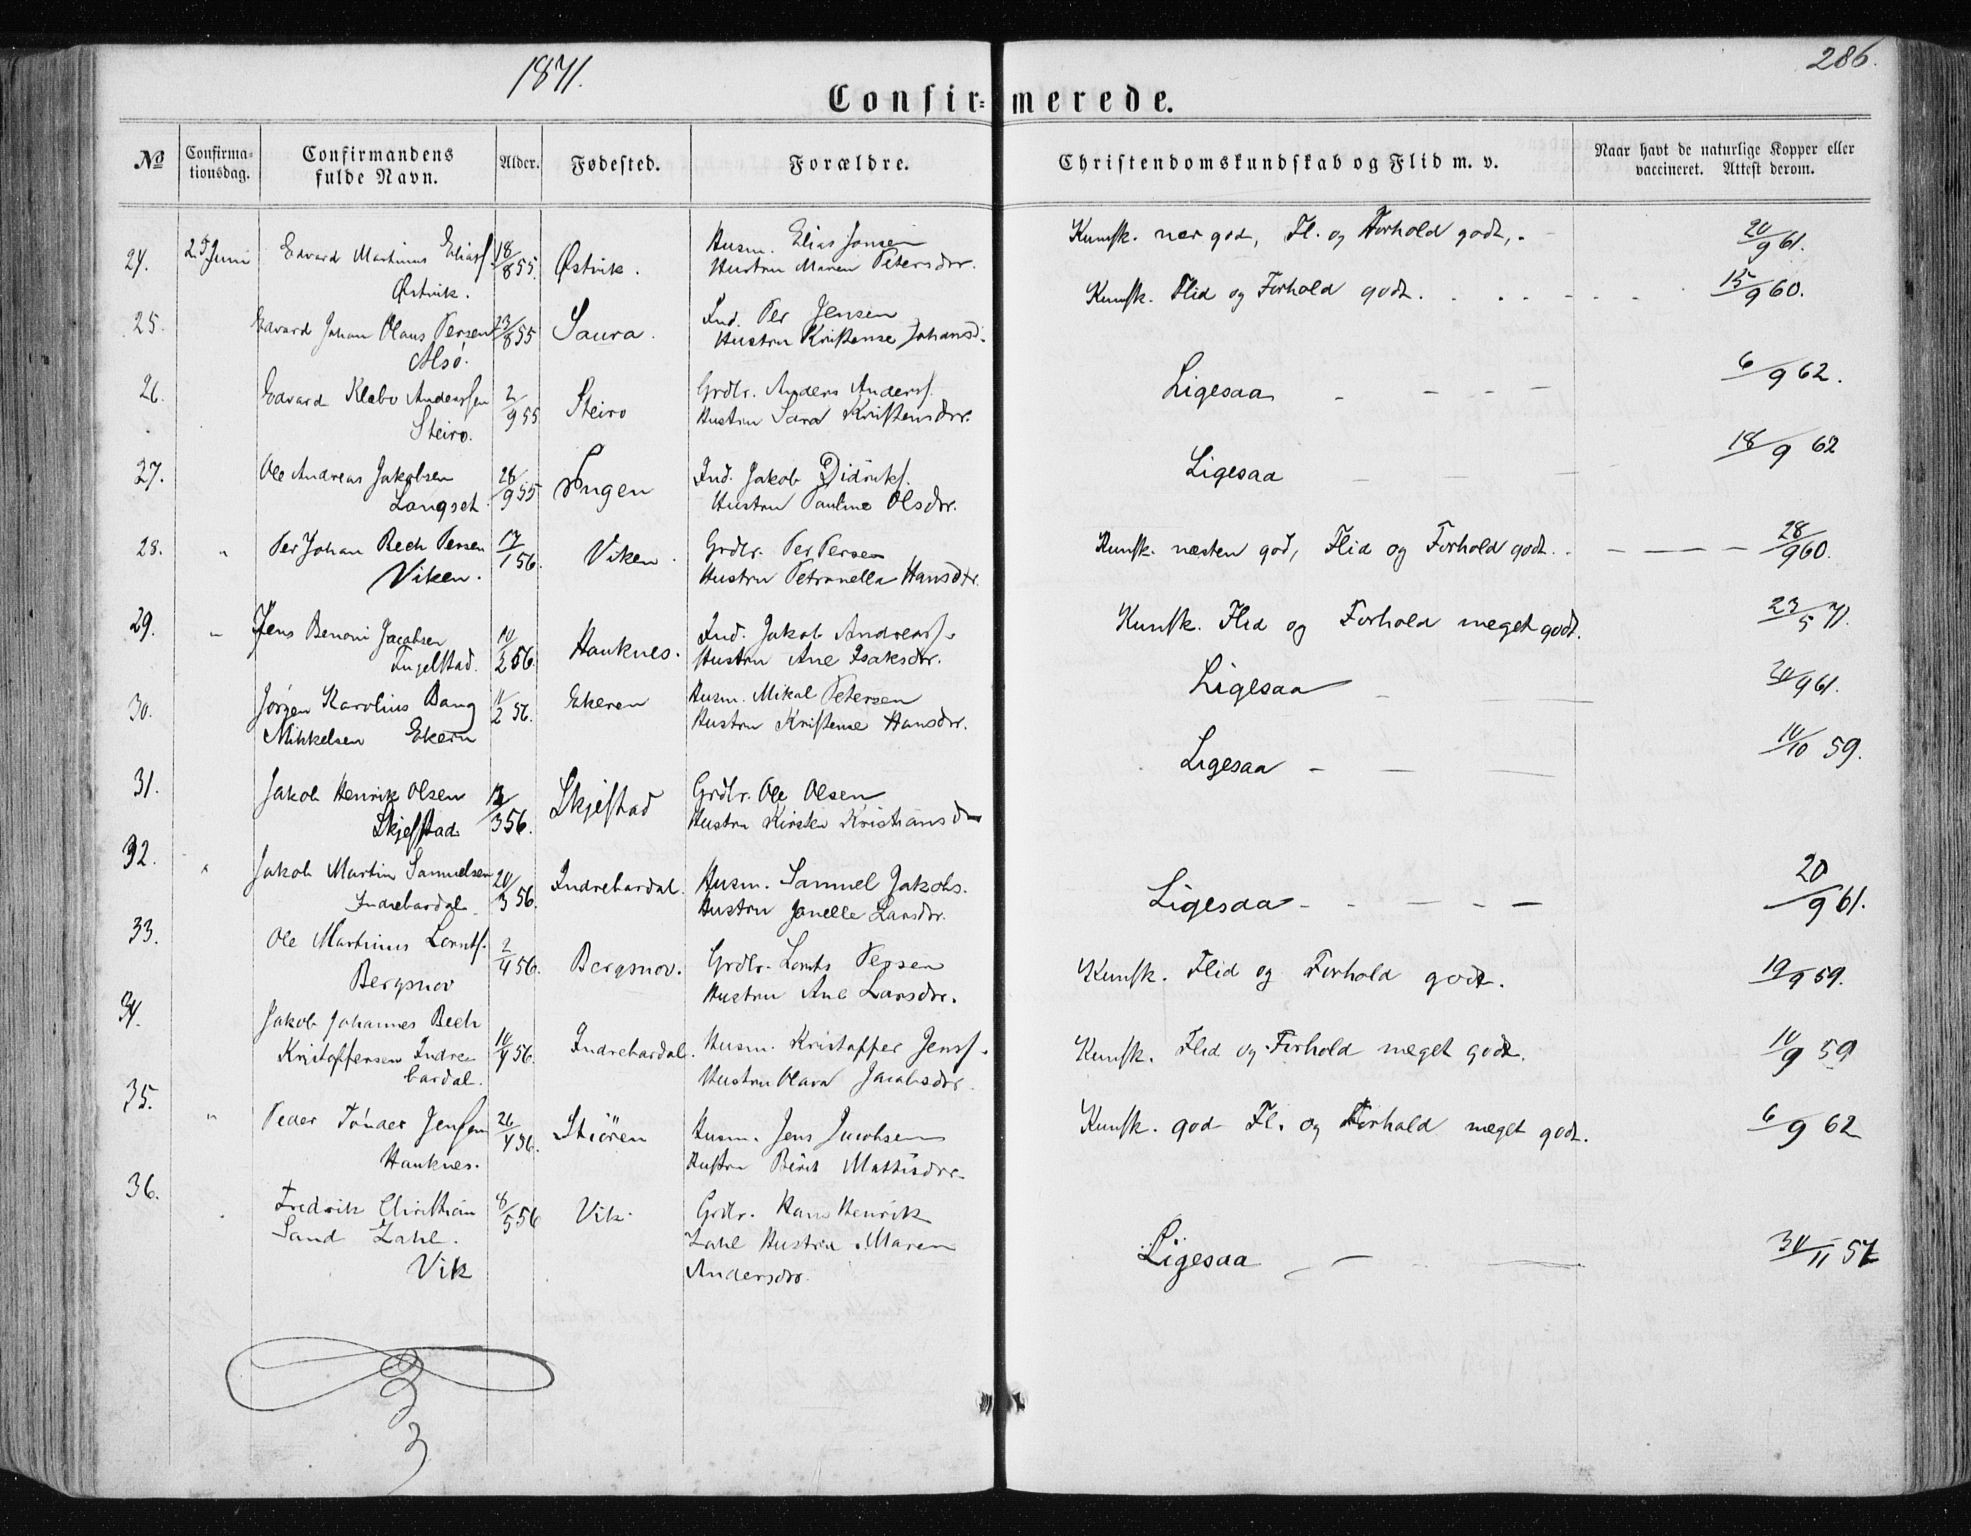 1871.
286.
Confirmerede.
No
Confirmationsdag.
Confirmandens fulde Navn.
Alder.
Fødested.
Forældre.
Christendomskundskab og Flid m. v.
Naar havt de naturlige Kopper eller vaccineret. Attest derom.
24. 25 Juni Edvard Martinus Eliass. 18/8 55. Østvik. Husm. Elias Jonsen Kunsk. nær god, Fl. og Forhold godt, 20/9 61.
Østvik. Hustru Maren Petersdtr.
25. Edvard Johan Olaus Persen 23/8 55 Saura. Ind. Per Jensen Kunsk. Flid og Forhold godt. 15/9 60.
Alsø. Hustru Kristense Johansd.
26. Edvard Klebo Anderssen 2/9 55 Steiro Grdbr. Anders Anderss. Ligesaa 6/9 62.
Steiro. Hustru Sara Kristensdtr.
27. Ole Andreas Jakobsen 28/9 55 Ind. Jakob Didriks. Ligesaa 18/9 62
Langset Hustru Pauline Olsdtr.
28. " Per Johan Bech Persen 17/1 56. Viken. Grdbr. Per Persen Kunsk. næsten god, Flid og Forhold godt. 28/9 60.
Viken. Hustru Petronella Hansdtr.
29. " Jens Benoni Jacobsen 10/2 56. Hauknes. Ind. Jakob Andreass. Kunsk. Flid og Forhold meget godt. 23/5 71.
Engelstad. Hustru Ane Isaksdtr.
30. Jørgen Karolius Bang 11/2 56. Ekeren Husm. Mikal Petersen Ligesaa 20/9 61.
Mikkelsen Ekern Hustru Kristense Hansdtr.
31. Jakob Henrik Olsen /3 56. Skjefstad Grdbr. Ole Olsen Ligesaa 10/10 59.
Skjefstad. Hustru Kirsten Kristiansd
32. " Jakob Martin Samuelsen 20/3 56. Indrebardal. Husm. Samuel Jakobs. Ligesaa 20/9 61.
Indrebardal. Hustru Janelle Larsdtr.
33. Ole Martinus Lornts. 2/4 56. Bergsnov. Grdbr. Lornts Persen Kunsk. Flid og Forhold godt. 19/9 59.
Bergsnov Hustru Ane Larsdtr.
34. Jakob Johannes Bech 10/4 56. Indrebardal. Husm. Kristoffer Jenss. Kunsk. Flid og Forhold meget godt. 10/9 59
Kristoffersen Indre Hustru Olava Jacobsdtr.
bardal.
35. " Peder Tønder Jensen 26/4 56. Husm. Jens Jacobsen Kunsk. god Fl. og Forhold meget godt. 6/9 62
Hauknes. Hustru Berit Mattisdtr.
36. Fredrik Christian 8/5 56 Vik. Grdbr. Hans Henrik Ligesaa 30/11 57
Sand Zahl. Zahl Hustru Maren
Vik Andersdtr.